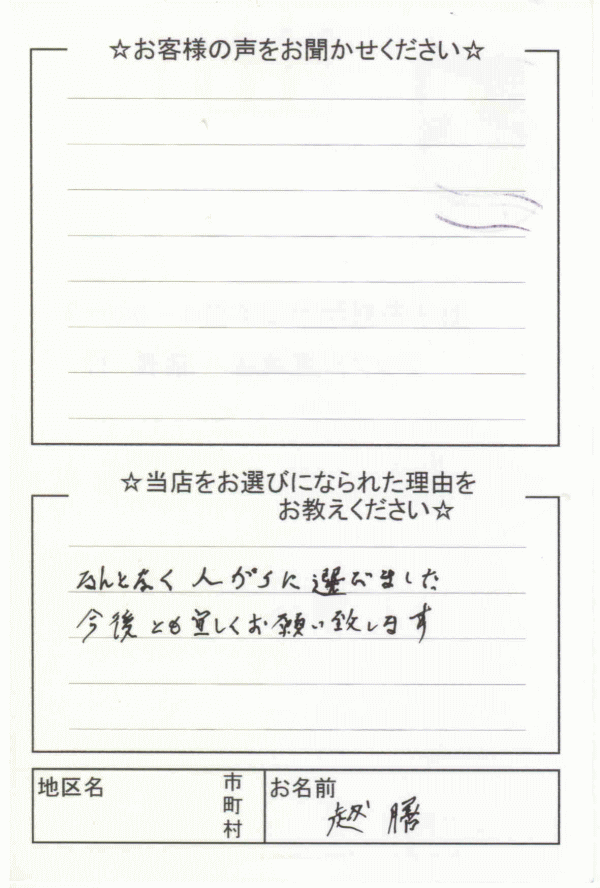 ☆お客様の声をお聞かせください☆
☆当店をお選びになられた理由を
お教えください☆
なんとなく 人がらに 選びました
今後とも宜しくお願い致します
地区名
市
町
村
お名前
越